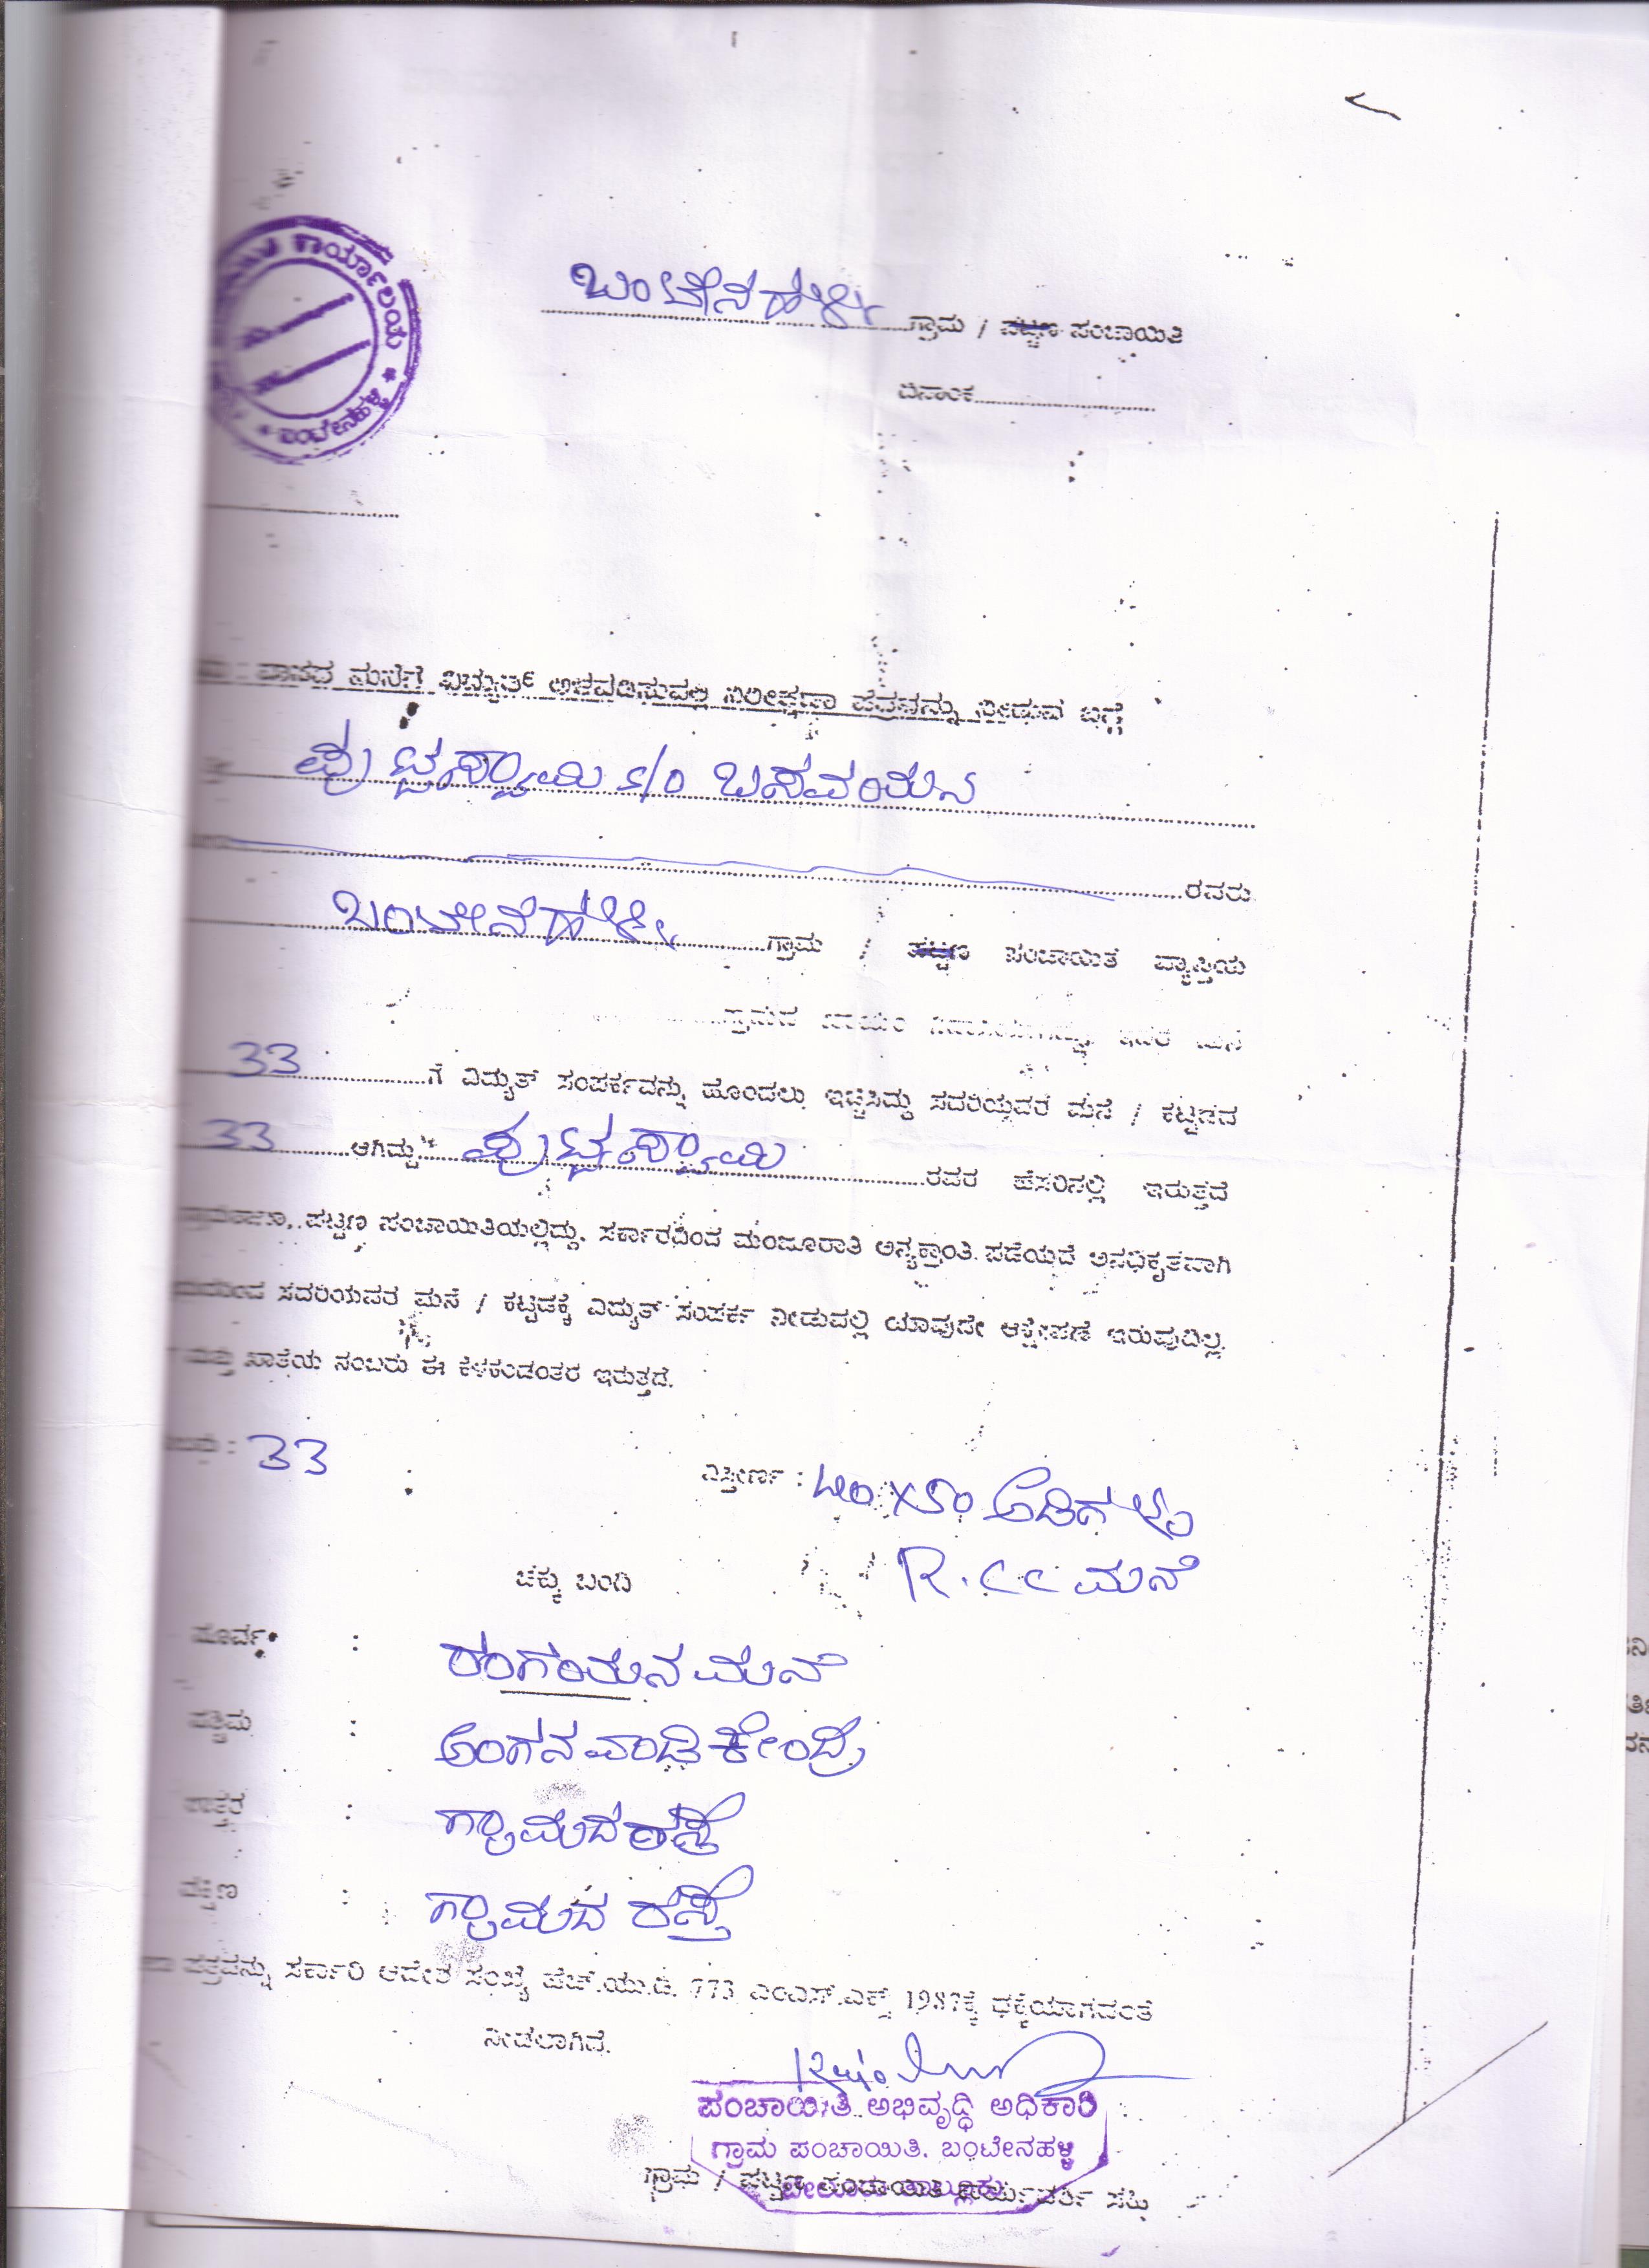 ಕಾರ್ಯಾಲಯ * ಬಂಟೇನಹಳ್ಳಿ *
ಬಂಟೇನಹಳ್ಳಿ ಗ್ರಾಮ / ಪಟ್ಟಣ ಪಂಚಾಯಿತಿ
ದಿನಾಂಕ
ವಾಸದ ಮನೆಗೆ ವಿದ್ಯುತ್ ಅಳವಡಿಸುವಲ್ಲಿ ನಿರೀಕ್ಷಣಾ ಪತ್ರವನ್ನು ನೀಡುವ ಬಗ್ಗೆ
ಪುಟ್ಟಸ್ವಾಮಿ s/o ಬಸವಯ್ಯನ
ರವರು
ಬಂಟೇನಹಳ್ಳಿ ಗ್ರಾಮ / ಪಟ್ಟಣ ಪಂಚಾಯಿತಿ ವ್ಯಾಪ್ತಿಯ
ಗ್ರಾಮದ ಇವರ ಮನೆ
33 ಗೆ ವಿದ್ಯುತ್ ಸಂಪರ್ಕವನ್ನು ಹೊಂದಲು ಇಚ್ಛಿಸಿದ್ದು ಸದರಿಯವರ ಮನೆ / ಕಟ್ಟಡದ
33 ಆಗಿದ್ದು ಪುಟ್ಟಸ್ವಾಮಿ ರವರ ಹೆಸರಿನಲ್ಲಿ ಇರುತ್ತದೆ
ಪಟ್ಟಣ ಪಂಚಾಯಿತಿಯಲ್ಲಿದ್ದು, ಸರ್ಕಾರದಿಂದ ಮಂಜೂರಾತಿ ಅನ್ಯಕ್ರಾಂತಿ ಪಡೆಯದೆ ಅನಧಿಕೃತವಾಗಿ
ಸದರಿಯವರ ಮನೆ / ಕಟ್ಟಡಕ್ಕೆ ವಿದ್ಯುತ್ ಸಂಪರ್ಕ ನೀಡುವಲ್ಲಿ ಯಾವುದೇ ಆಕ್ಷೇಪಣೆ ಇರುವುದಿಲ್ಲ.
ಮತ್ತು ಖಾತೆಯ ನಂಬರು ಈ ಕೆಳಕಂಡಂತರ ಇರುತ್ತದೆ.
: 33
ವಿಸ್ತೀರ್ಣ : ೬೦ X ೨೦ ಅಡಿಗಳು
R.CC ಮನೆ
ಚಕ್ಕು ಬಂದಿ
ಪೂರ್ವ : ರಂಗಯ್ಯನ ಮನೆ
ಪಶ್ಚಿಮ : ಅಂಗನವಾಡಿ ಕೇಂದ್ರ
ಉತ್ತರ : ಗ್ರಾಮದ ರಸ್ತೆ
ದಕ್ಷಿಣ : ಗ್ರಾಮದ ರಸ್ತೆ
ಪತ್ರವನ್ನು ಸರ್ಕಾರಿ ಆದೇಶ ಸಂಖ್ಯೆ ಹೆಚ್.ಯು.ಡಿ. 773 ಎಂಎಸ್.ಎಕ್ಸ್ 1987ಕ್ಕೆ ಧಕ್ಕೆಯಾಗದಂತೆ
ನೀಡಲಾಗಿದೆ.
ಪಂಚಾಯಿತಿ ಅಭಿವೃದ್ಧಿ ಅಧಿಕಾರಿ
ಗ್ರಾಮ ಪಂಚಾಯಿತಿ. ಬಂಟೇನಹಳ್ಳಿ
ಬೇಲೂರು ತಾಲ್ಲೂಕು
ಗ್ರಾಮ / ಪಟ್ಟಣ ಪಂಚಾಯಿತಿ ಕಾರ್ಯದರ್ಶಿ ಸಹಿ